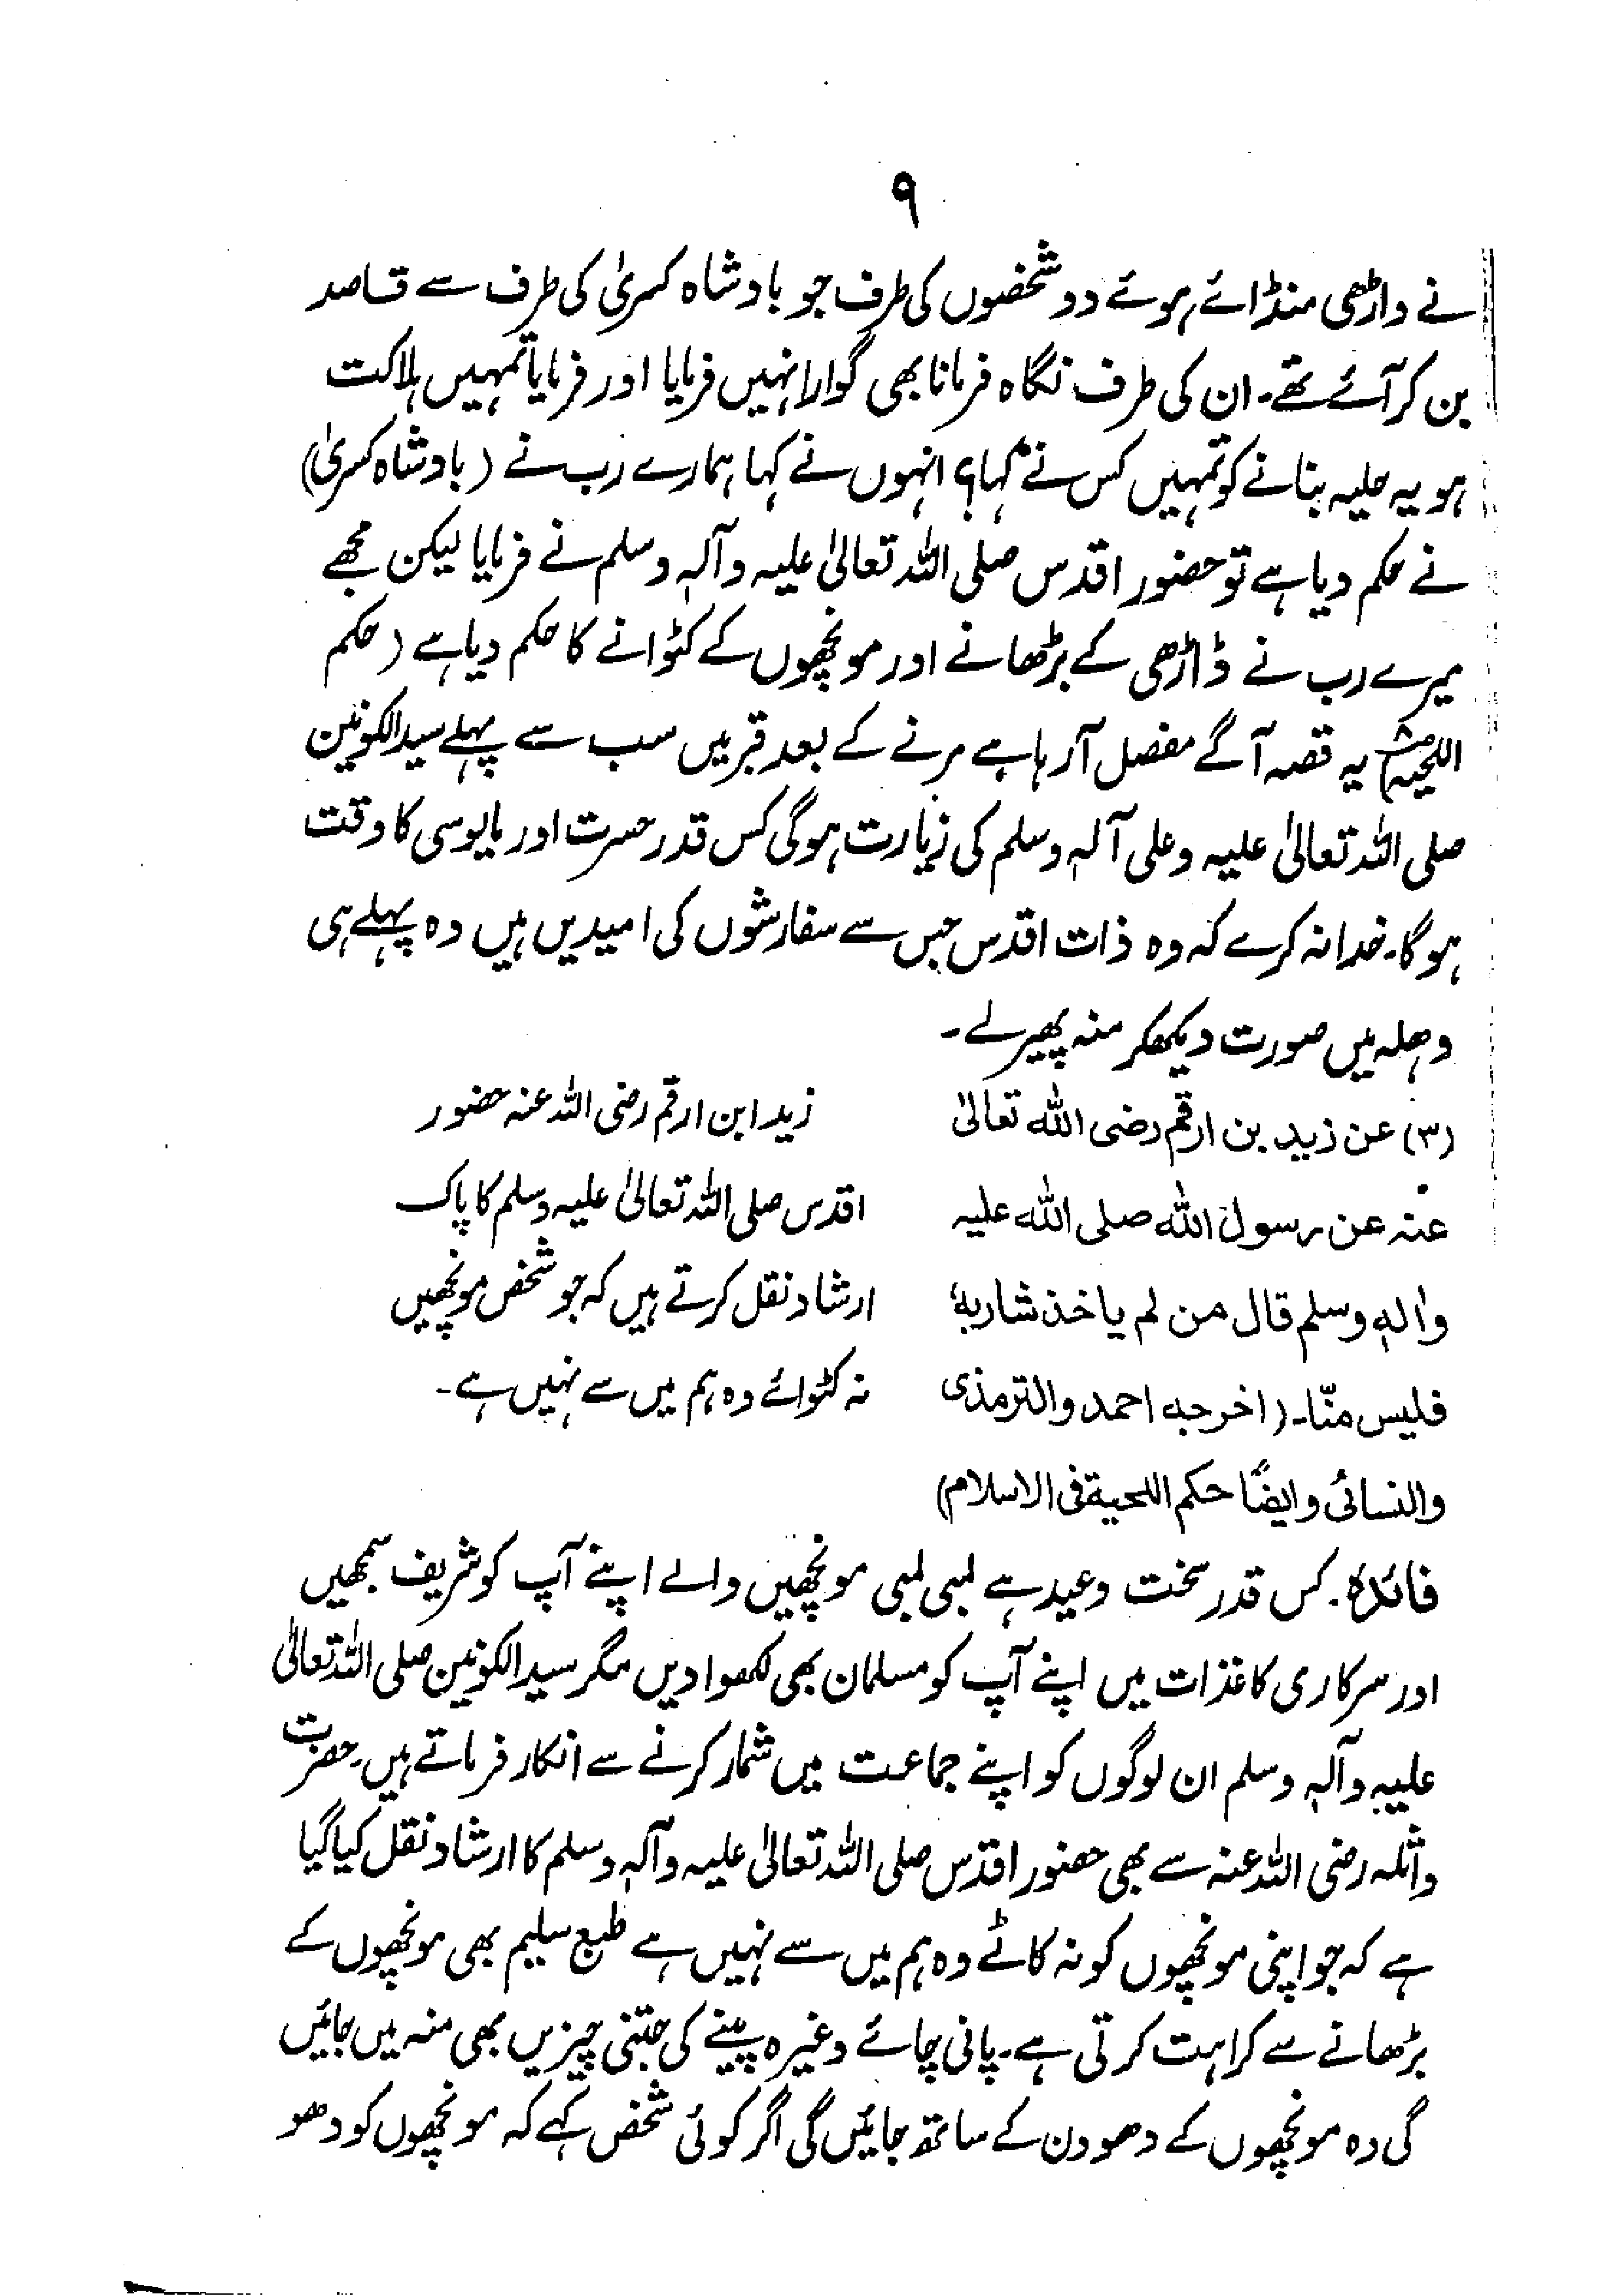 ۹
نے داڑھی منڈائے ہوئے دو شخصوں کی طرف جو بادشاہ کسریٰ کی طرف سے قاصد
بن کر آئے تھے۔ ان کی طرف نگاہ فرمانا بھی گوارا نہیں فرمایا اور فرمایا تمہیں ہلاکت
ہو یہ حلیہ بنانے کو تمہیں کس نے کہا؟ انہوں نے کہا ہمارے رب نے (بادشاہ کسریٰ)
نے حکم دیا ہے تو حضور اقدس صلی اللہ تعالیٰ علیہ وآلہٖ وسلم نے فرمایا لیکن مجھے
میرے رب نے ڈاڑھی کے بڑھانے اور مونچھوں کے کٹوانے کا حکم دیا ہے (حکم
اللحیہ) یہ قصہ آگے مفصل آرہا ہے مرنے کے بعد قبر میں سب سے پہلے سیدالکونین
صلی اللہ تعالیٰ علیہ وعلی آلہٖ وسلم کی زیارت ہوگی کس قدر حسرت اور مایوسی کا وقت
ہوگا۔ خدا نہ کرے کہ وہ ذات اقدس جس سے سفارشوں کی امیدیں ہیں وہ پہلے ہی
وھلہ میں صورت دیکھکر منہ پھیر لے۔
(۳) عن زید بن ارقم رضی اللہ تعالیٰ
عنہ عن رسول اللہ صلی اللہ علیہ
واٰلہٖ وسلم قال من لم یاخذ شاربہٗ
فلیس منّا۔ (اخرجہ احمد والترمذی
والنسائی وایضًا حکم اللحیة فی الاسلام)
زید ابن ارقم رضی اللہ عنہ حضور
اقدس صلی اللہ تعالیٰ علیہ وسلم کا پاک
ارشاد نقل کرتے ہیں کہ جو شخص مونچھیں
نہ کٹوائے وہ ہم میں سے نہیں ہے۔
فائدہ۔ کس قدر سخت وعید ہے لمبی لمبی مونچھیں والے اپنے آپ کو شریف سمجھیں
اور سرکاری کاغذات میں اپنے آپ کو مسلمان بھی لکھوا دیں مگر سیدالکونین صلی اللہ تعالیٰ
علیہ وآلہٖ وسلم ان لوگوں کو اپنے جماعت میں شمار کرنے سے انکار فرماتے ہیں۔ حضرت
واثلہ رضی اللہ عنہ سے بھی حضور اقدس صلی اللہ تعالیٰ علیہ وآلہٖ وسلم کا ارشاد نقل کیا گیا
ہے کہ جو اپنی مونچھوں کو نہ کاٹے وہ ہم میں سے نہیں ہے طبع سلیم بھی مونچھوں کے
بڑھانے سے کراہت کرتی ہے۔ پانی چائے وغیرہ پینے کی جتنی چیزیں بھی منہ میں جائیں
گی وہ مونچھوں کے دھوون کے ساتھ جائیں گی اگر کوئی شخص کہے کہ مونچھوں کو دھو